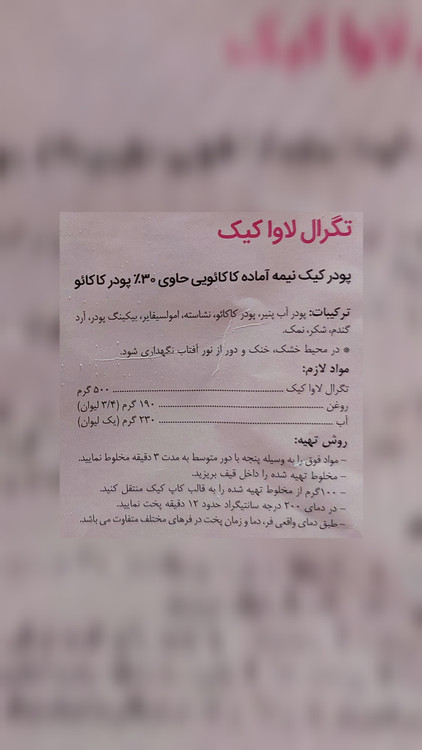 تگرال لاوا کیک
پودر کیک نیمه آماده کاکائویی حاوی ۳۰٪ پودر کاکائو
ترکیبات: پودر آب پنیر، پودر کاکائو، نشاسته، امولسیفایر، بیکینگ پودر، آرد
گندم، شکر، نمک.
* در محیط خشک، خنک و دور از نور آفتاب نگهداری شود.
مواد لازم:
تگرال لاوا کیک ........................................ ۵۰۰ گرم
روغن ........................................ ۱۹۰ گرم (۳/۴ لیوان)
آب ........................................ ۲۳۰ گرم (یک لیوان)
روش تهیه:
– مواد فوق را به وسیله پنجه با دور متوسط به مدت ۳ دقیقه مخلوط نمایید.
– مخلوط تهیه شده را داخل قیف بریزید.
– ۱۰۰گرم از مخلوط تهیه شده را به قالب کاپ کیک منتقل کنید.
– در دمای ۲۰۰ درجه سانتیگراد حدود ۱۲ دقیقه پخت نمایید.
– طبق دمای واقعی فر، دما و زمان پخت در فرهای مختلف متفاوت می باشد.